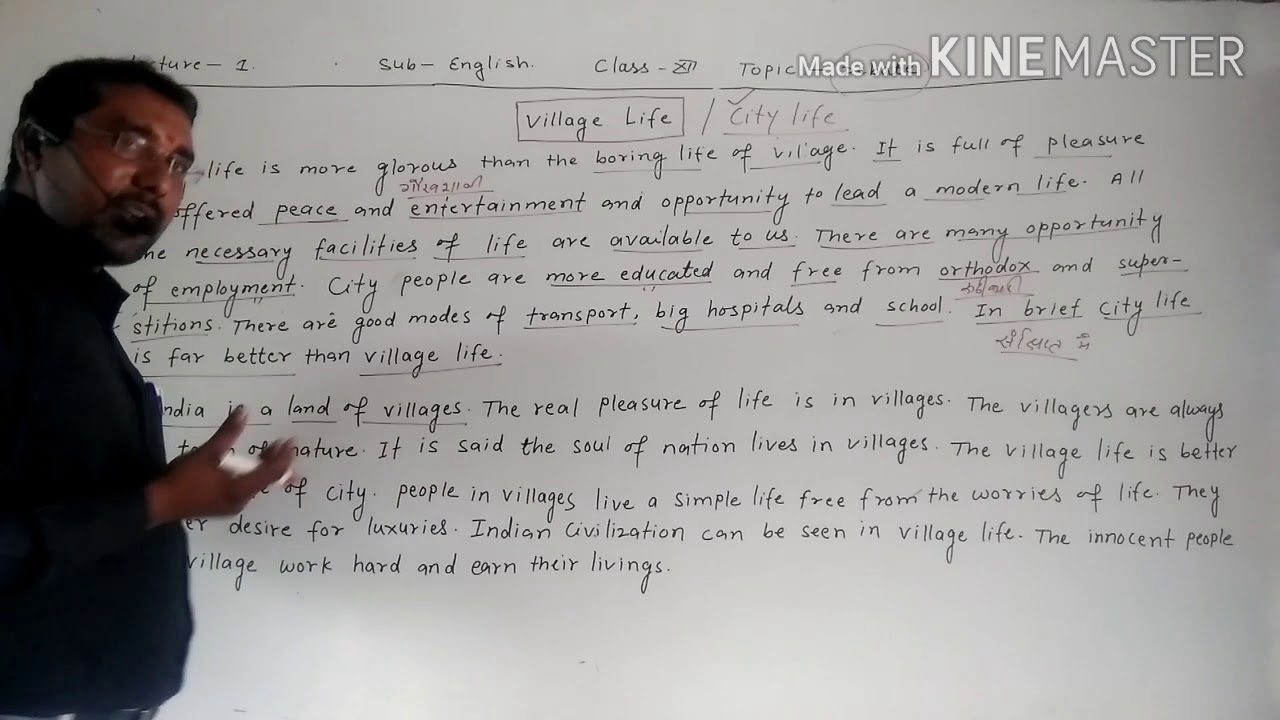 Lecture - 1. Sub- English. Class - XII Topic
Made with KINEMASTER
Village Life / City life
life is more glorous than the boring life of village. It is full of pleasure
गौरवशाली
offered peace and entertainment and opportunity to lead a modern life. All
the necessary facilities of life are available to us. There are many opportunity
of employment. City people are more educated and free from orthodox and super-
stitions. There are good modes of transport, big hospitals and school. In brief city life
संक्षिप्त में
is far better than village life.
India is a land of villages. The real pleasure of life is in villages. The villagers are always
nature. It is said the soul of nation lives in villages. The village life is better
of city. people in villages live a simple life free from the worries of life. They
desire for luxuries. Indian Civilization can be seen in village life. The innocent people
village work hard and earn their livings.